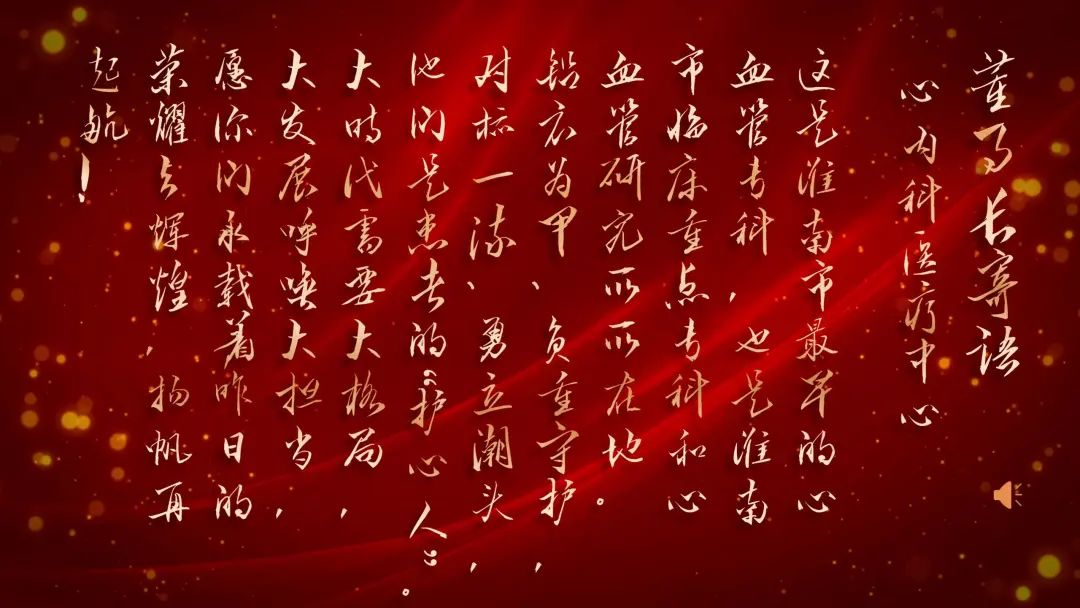 董事长寄语
心内科医疗中心
这是淮南市最早的心
血管专科，也是淮南
市临床重点专科和心
血管研究所所在地。
铅衣为甲、负重守护，
对标一流、勇立潮头，
他们是患者的“护心人”。
大时代需要大格局，
大发展呼唤大担当，
愿你们永载着昨日的
荣耀与辉煌，扬帆再
起航！